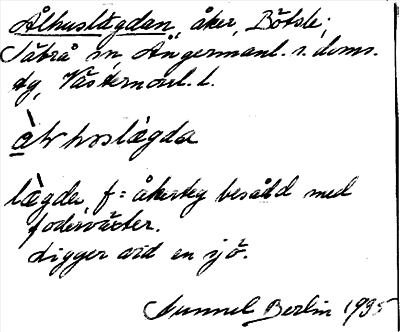 Ålhuslægdan, åker, Bölsle,
Säbrå sn, Ångermanl. s. doms.
dg, Västernorrl. l.
lægda, f = åkerteg besådd med
foderväxter.
Ligger vid en sjö.
Gunnel Berlin 1935